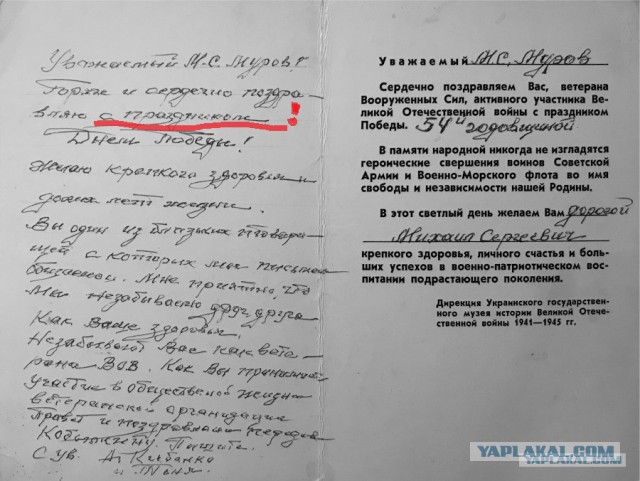 Уважаемый М.С. Муров!
Горяче и сердечно поздра-
вляю с праздником!
Днем Победы!
Желаю крепкого здоровья и
долгих лет жизни.
Вы один из близких товари-
щей с которых мы письменно
общаемся. Мне приятно, что
Мы незабываем друг друга
Как Ваше здоровье.
Незабывают Вас как вете-
рана ВОВ. Как Вы принимаете
участие в общественной жизни
ветеранской организации
Привет и поздравления
Пишите.
С ув.
и Таня.
Уважаемый М.С. Муров
Сердечно поздравляем Вас, ветерана
Вооруженных Сил, активного участника Ве-
ликой Отечественной войны с праздником
Победы. 54й годовщиной
В памяти народной никогда не изгладятся
героические свершения воинов Советской
Армии и Военно-Морского флота во имя
свободы и независимости нашей Родины.
В этот светлый день желаем Вам дорогой
Михаил Сергеевич
крепкого здоровья, личного счастья и боль-
ших успехов в военно-патриотическом вос-
питании подрастающего поколения.
Дирекция Украинского государствен-
ного музея истории Великой Отече-
ственной войны 1941—1945 гг.
YAPLAKAL.COM
YAPLAKAL.COM